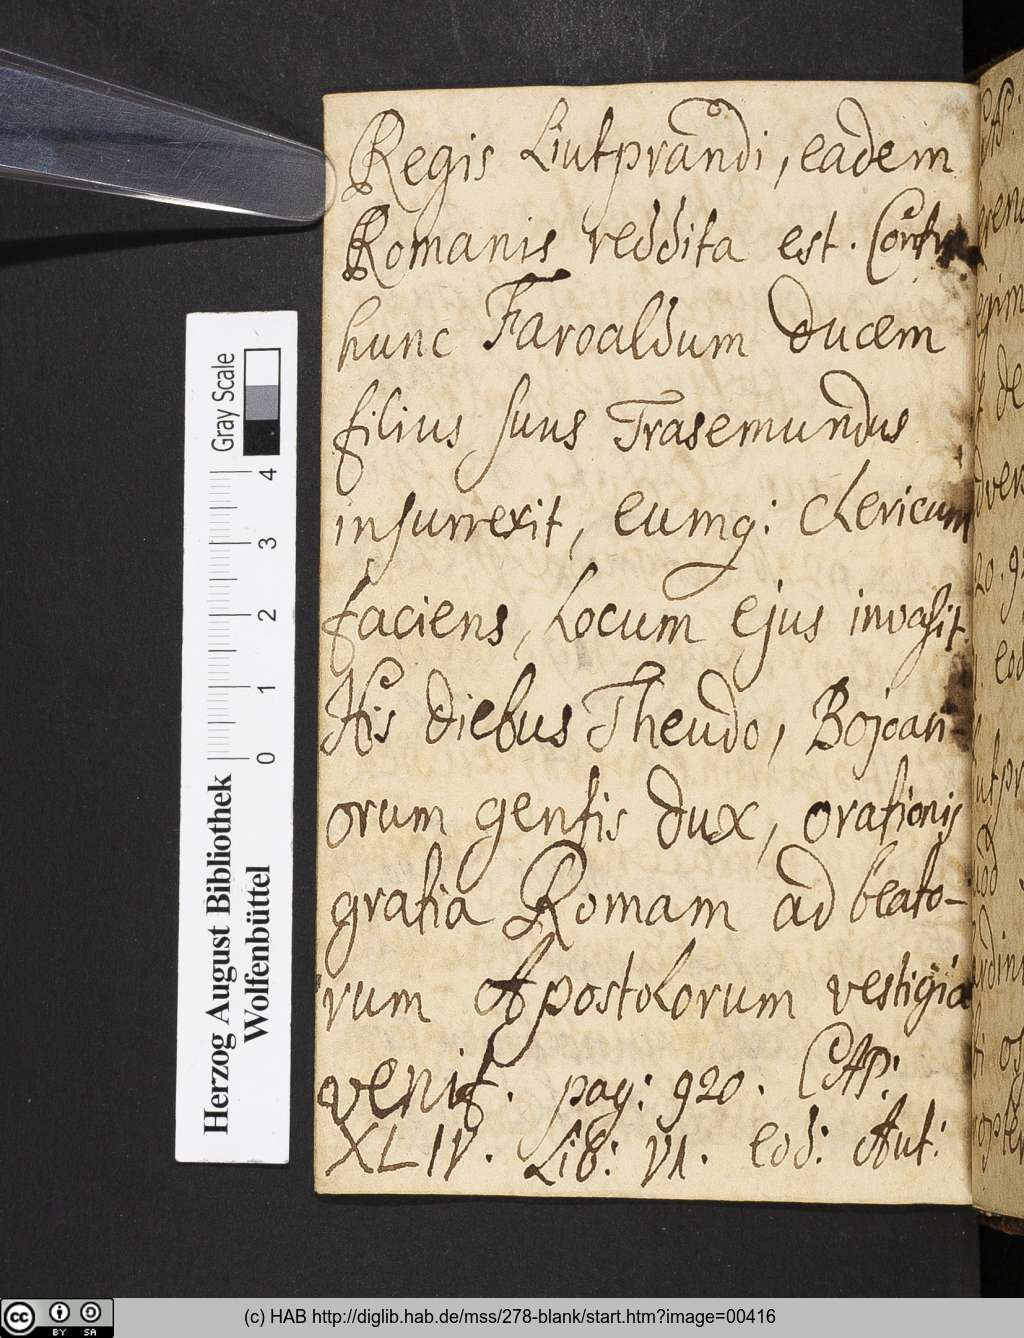 Regis Liutprandi, eadem
Romanis reddita est. Contra
hunc Faroaldum ducem
filius suus Trasemundus
insurrexit, eumq: clericum
faciens, locum ejus invasit.
His diebus Theudo, Bojoari-
orum gentis dux, orationis
gratia Romam ad beato-
rum Apostolorum vestigia
venit. pag: 920. CAP:
XLIV. Lib: VI. eod: Aut:
Gray Scale
0 1 2 3 4
Herzog August Bibliothek
Wolfenbüttel
cc BY SA
(c) HAB http://diglib.hab.de/mss/278-blank/start.htm?image=00416